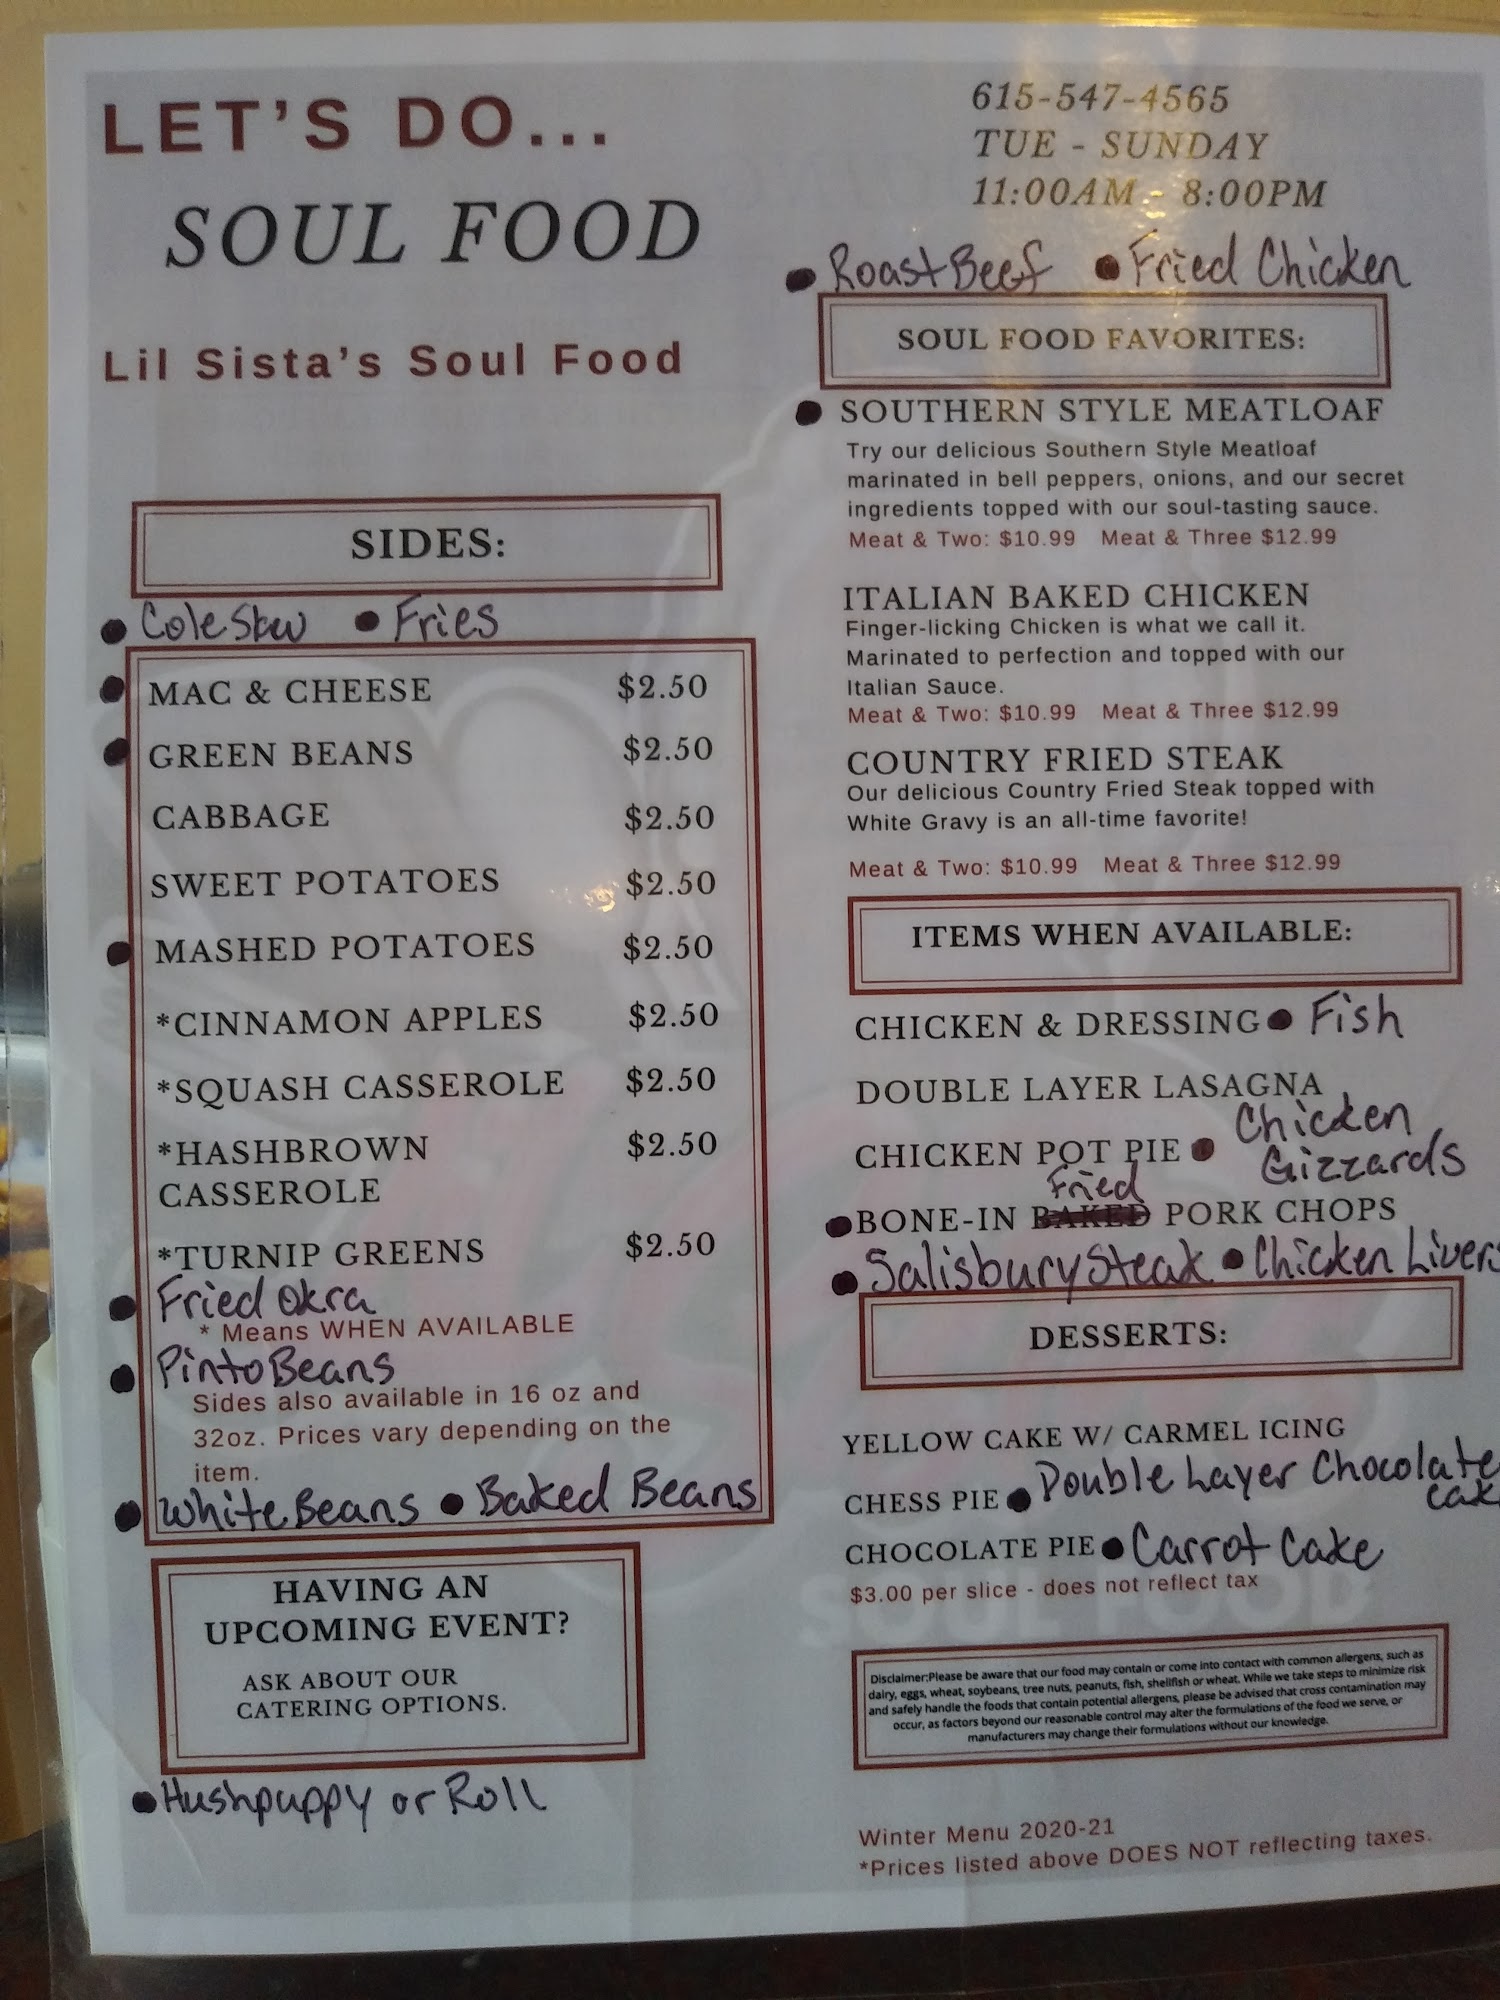 LET'S DO...
SOUL FOOD
Lil Sista's Soul Food
SIDES:
• Coleslaw • Fries
• MAC & CHEESE $2.50
• GREEN BEANS $2.50
CABBAGE $2.50
SWEET POTATOES $2.50
• MASHED POTATOES $2.50
*CINNAMON APPLES $2.50
*SQUASH CASSEROLE $2.50
*HASHBROWN $2.50
CASSEROLE
*TURNIP GREENS $2.50
• Fried Okra
* Means WHEN AVAILABLE
• Pinto Beans
Sides also available in 16 oz and
32oz. Prices vary depending on the
item.
• White Beans • Baked Beans
HAVING AN
UPCOMING EVENT?
ASK ABOUT OUR
CATERING OPTIONS.
• Hushpuppy or Roll
615-547-4565
TUE - SUNDAY
11:00AM - 8:00PM
• Roast Beef • Fried Chicken
SOUL FOOD FAVORITES:
• SOUTHERN STYLE MEATLOAF
Try our delicious Southern Style Meatloaf
marinated in bell peppers, onions, and our secret
ingredients topped with our soul-tasting sauce.
Meat & Two: $10.99 Meat & Three $12.99
ITALIAN BAKED CHICKEN
Finger-licking Chicken is what we call it.
Marinated to perfection and topped with our
Italian Sauce.
Meat & Two: $10.99 Meat & Three $12.99
COUNTRY FRIED STEAK
Our delicious Country Fried Steak topped with
White Gravy is an all-time favorite!
Meat & Two: $10.99 Meat & Three $12.99
ITEMS WHEN AVAILABLE:
CHICKEN & DRESSING • Fish
DOUBLE LAYER LASAGNA
CHICKEN POT PIE • Chicken
Gizzards
Fried
• BONE-IN BAKED PORK CHOPS
• Salisbury Steak • Chicken Livers
DESSERTS:
YELLOW CAKE W/ CARMEL ICING
CHESS PIE • Double Layer Chocolate
Cake
CHOCOLATE PIE • Carrot Cake
$3.00 per slice - does not reflect tax
Disclaimer:Please be aware that our food may contain or come into contact with common allergens, such as
dairy, eggs, wheat, soybeans, tree nuts, peanuts, fish, shellfish or wheat. While we take steps to minimize risk
and safely handle the foods that contain potential allergens, please be advised that cross contamination may
occur, as factors beyond our reasonable control may alter the formulations of the food we serve, or
manufacturers may change their formulations without our knowledge.
Winter Menu 2020-21
*Prices listed above DOES NOT reflecting taxes.